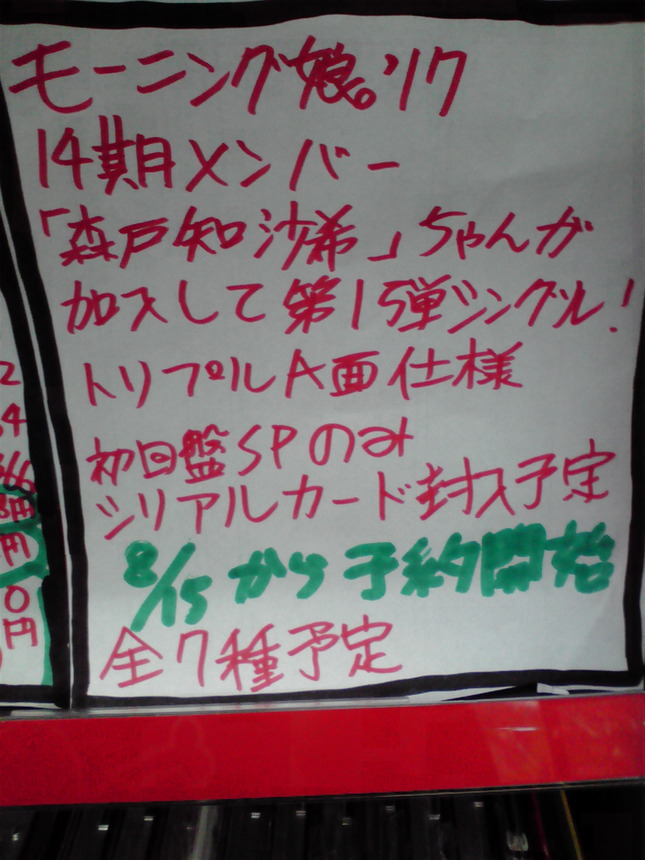 モーニング娘。'17
14期メンバー
「森戸知沙希」ちゃんが
加入して第15弾シングル!
トリプルA面仕様
初回盤SPのみ
シリアルカード封入予定
8/15から予約開始
全7種予定
2
4
66
円
円
0
円